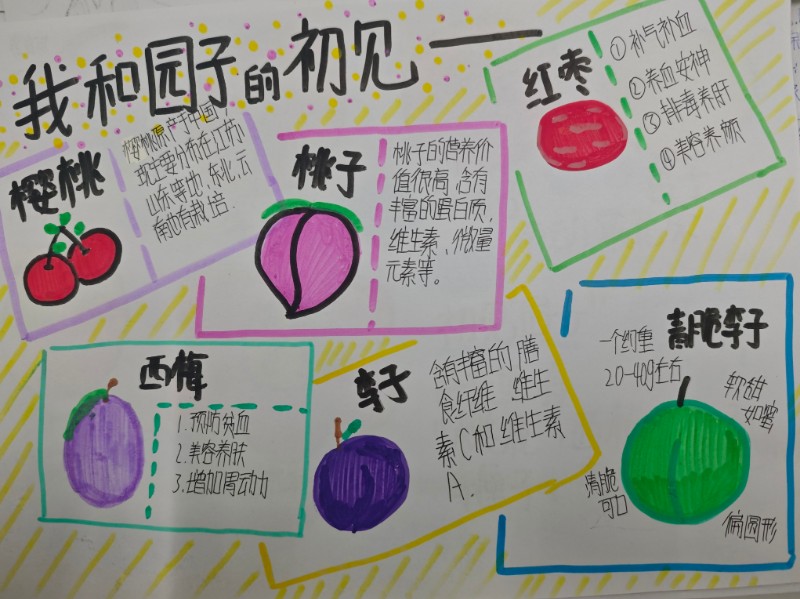 我和园子的初见——
樱桃
樱桃原产于中国,
现主要分布在江苏
山东等地,东北、云
南也有栽培.
桃子
桃子的营养价
值很高,含有
丰富的蛋白质,
维生素、微量
元素等。
红枣
①补气补血
②养血安神
③排毒养肝
④美容养颜
西梅
1.预防贫血
2.美容养肤
3.增加胃动力
李子
含有丰富的膳
食纤维 维生
素C和维生素
A.
青脆李子
一个约重
20-40g左右
软甜
如蜜
清脆
可口
偏圆形